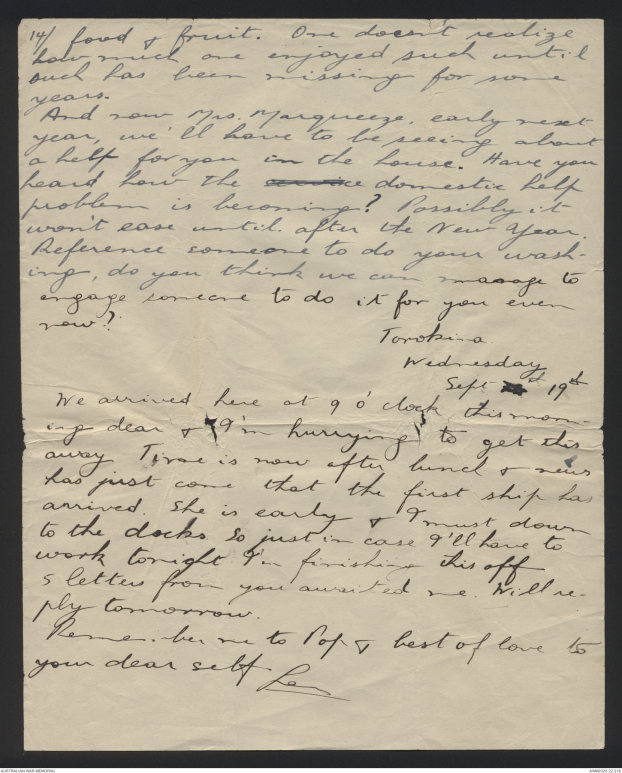 14/ food & fruit. One doesn't realize
how much one enjoyed such until
such has been missing for some
years.
And now Mrs. Marqueeze, early next
year, we'll have to be seeing about
a help for you in the house. Have you
heard how the domestic help
problem is becoming? Possibly it
won't ease until after the New Year.
Reference someone to do your wash-
ing, do you think we can manage to
engage someone to do it for you even
now?
Torokina
Wednesday
Sept 19th
We arrived here at 9 o'clock this morn-
ing dear & I'm hurrying to get this
away Time is now after lunch & news
has just come that the first ship has
arrived. She is early & I must down
to the docks So just in case I'll have to
work tonight I'm finishing this off
5 letters from you awaited me. Will re-
ply tomorrow.
Remember me to Pop & best of love to
your dear self
Len
AUSTRALIAN WAR MEMORIAL